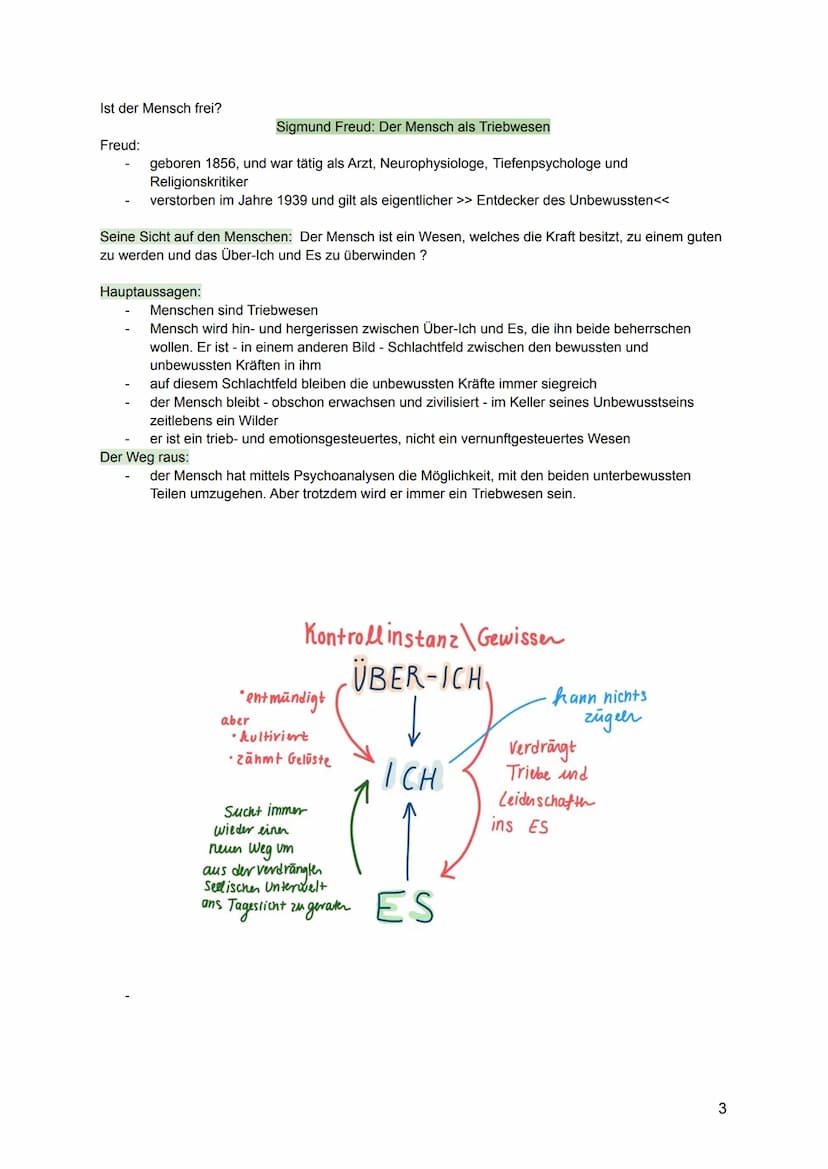 Ist der Mensch frei?
Sigmund Freud: Der Mensch als Triebwesen
Freud:
- geboren 1856, und war tätig als Arzt, Neurophysiologe, Tiefenpsychologe und
Religionskritiker
- verstorben im Jahre 1939 und gilt als eigentlicher >> Entdecker des Unbewussten<<
Seine Sicht auf den Menschen: Der Mensch ist ein Wesen, welches die Kraft besitzt, zu einem guten
zu werden und das Über-Ich und Es zu überwinden ?
Hauptaussagen:
- Menschen sind Triebwesen
- Mensch wird hin- und hergerissen zwischen Über-Ich und Es, die ihn beide beherrschen
wollen. Er ist - in einem anderen Bild - Schlachtfeld zwischen den bewussten und
unbewussten Kräften in ihm
- auf diesem Schlachtfeld bleiben die unbewussten Kräfte immer siegreich
- der Mensch bleibt - obschon erwachsen und zivilisiert - im Keller seines Unbewusstseins
zeitlebens ein Wilder
- er ist ein trieb- und emotionsgesteuertes, nicht ein vernunftgesteuertes Wesen
Der Weg raus:
- der Mensch hat mittels Psychoanalysen die Möglichkeit, mit den beiden unterbewussten
Teilen umzugehen. Aber trotzdem wird er immer ein Triebwesen sein.
Kontrollinstanz\Gewissen
ÜBER-ICH
*entmündigt
aber
• kultiviert
• zähmt Gelüste
kann nichts
zügeln
ICH
Verdrängt
Triebe und
Leidenschaften
ins ES
Sucht immer
wieder einen
neuen Weg um
aus der verdrängten
Seelischen Unterwelt
ans Tageslicht zu geraten
ES
-
3